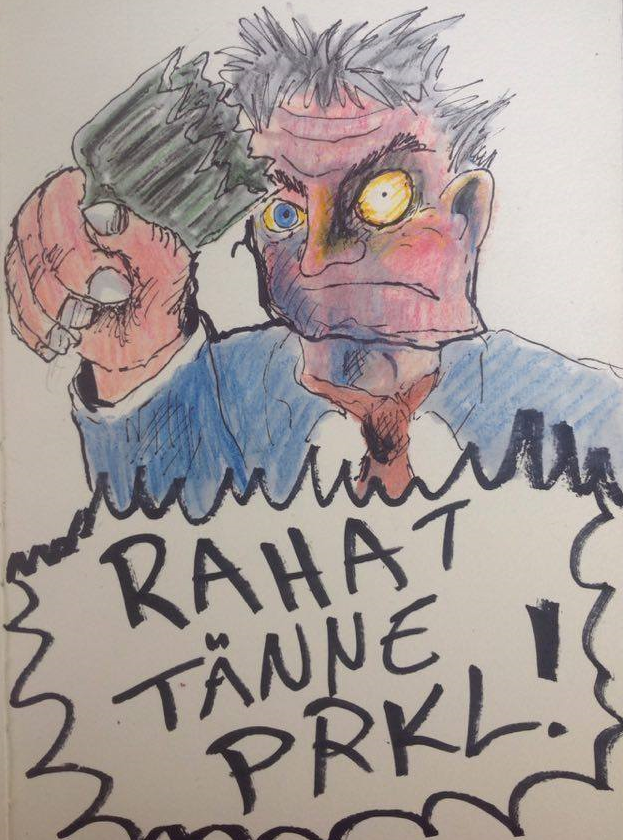 RAHAT
TÄNNE
PRKL!